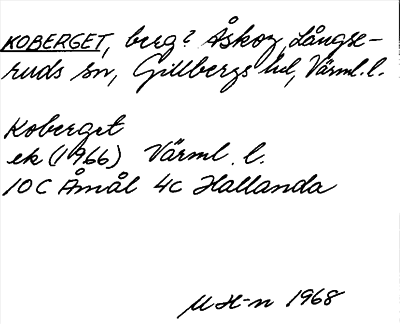 KOBERGET, berg? Åskog, Långse-
ruds sn, Gillbergs hd, Värml. l.
Koberget
ek (1966) Värml. l.
10 C Åmål 4c Hallanda
M H-n 1968